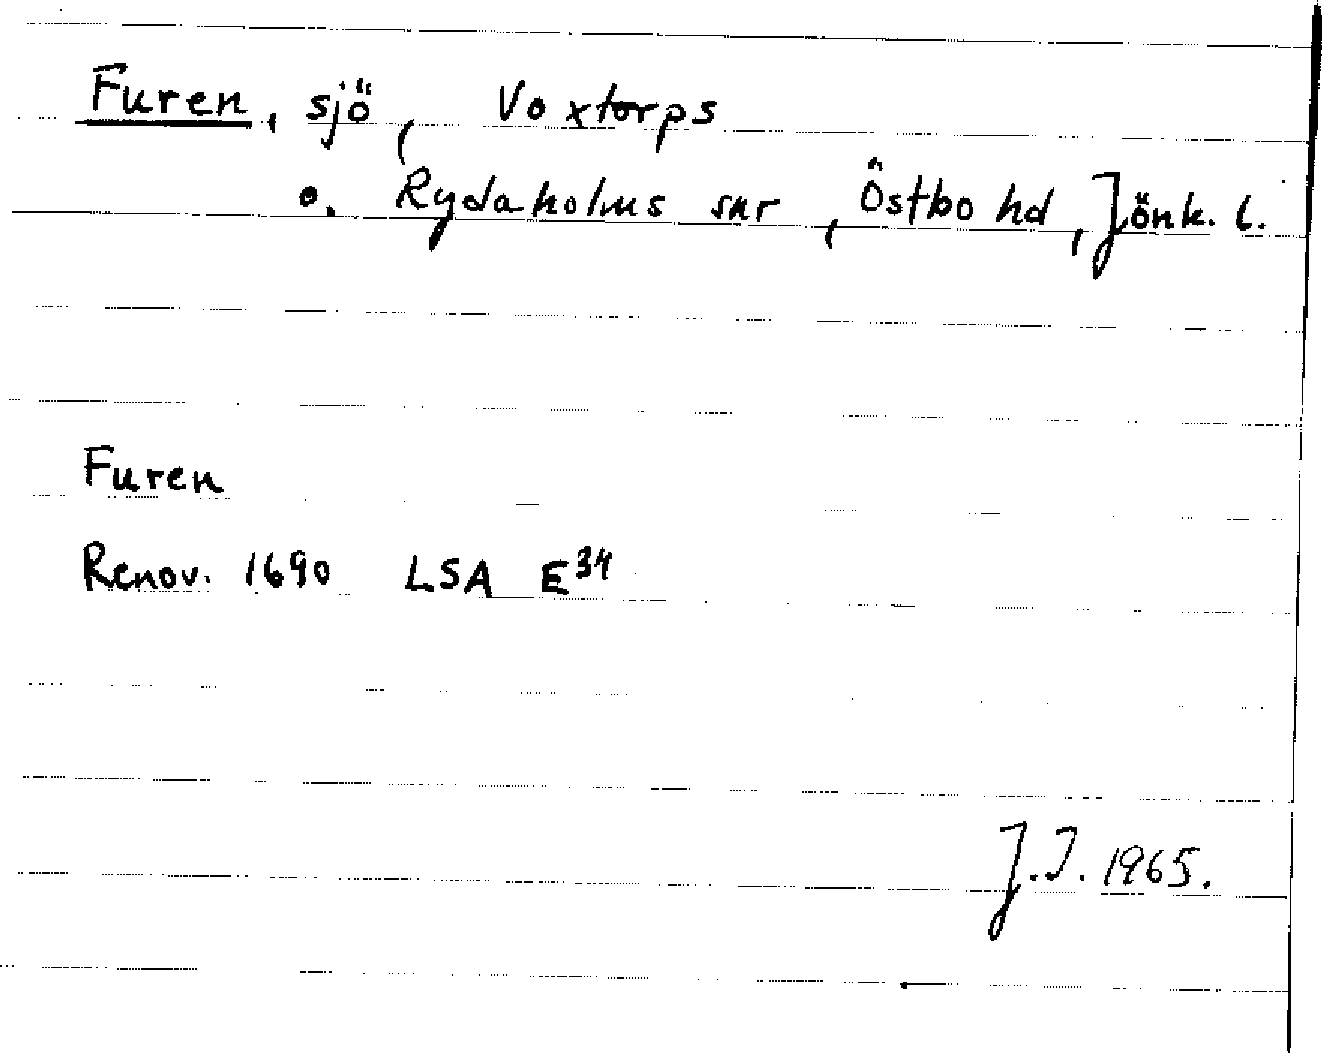 Furen, sjö, Voxtorps
o. Rydaholms snr, Östbo hd, Jönk. l.
Furen
Renov. 1690 LSA E³⁴
J.I. 1965.